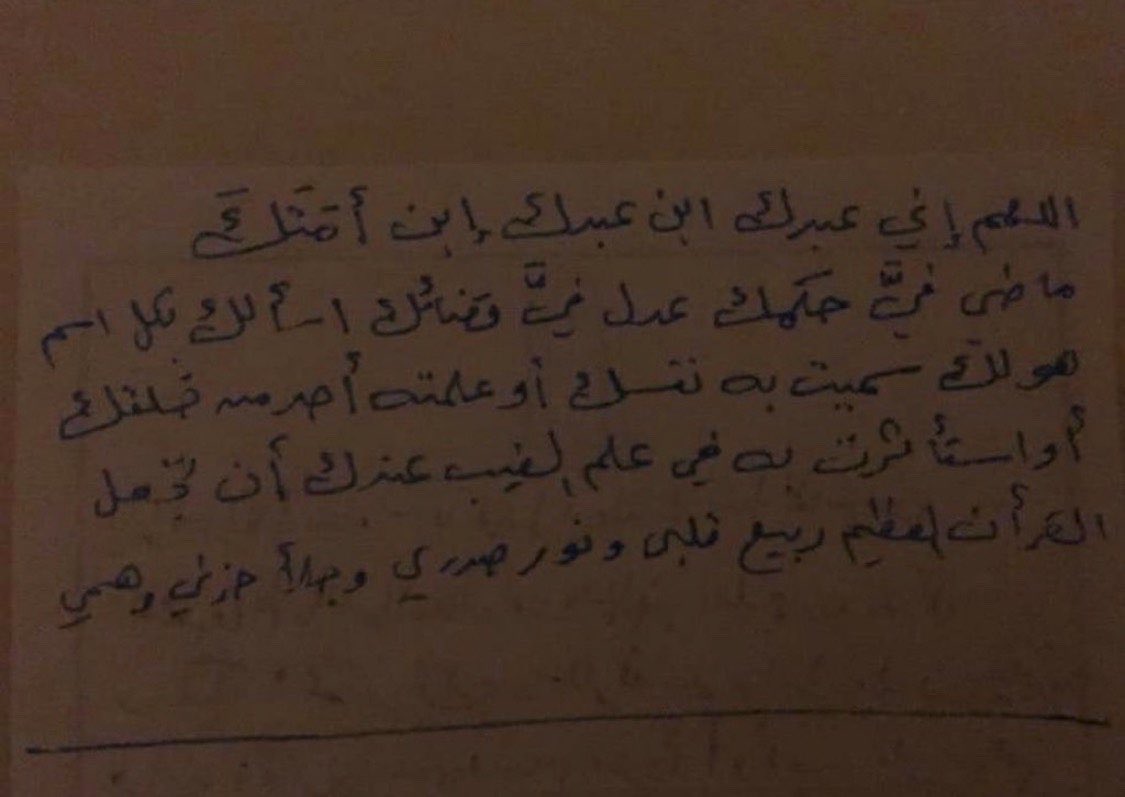 اللهم إني عبدك ابن عبدك إبن أمَتَكَ
ماضى فيَّ حكمك عدل فيَّ قضائك اسألك بكل اسم
هو لك سميت به نفسك أو علمته أحد من خلقك
أو استأثرت به في علم الغيب عندك أن تجعل
القرأن العظيم ربيع قلبى ونور صدري وجلاأ حزني وهمي